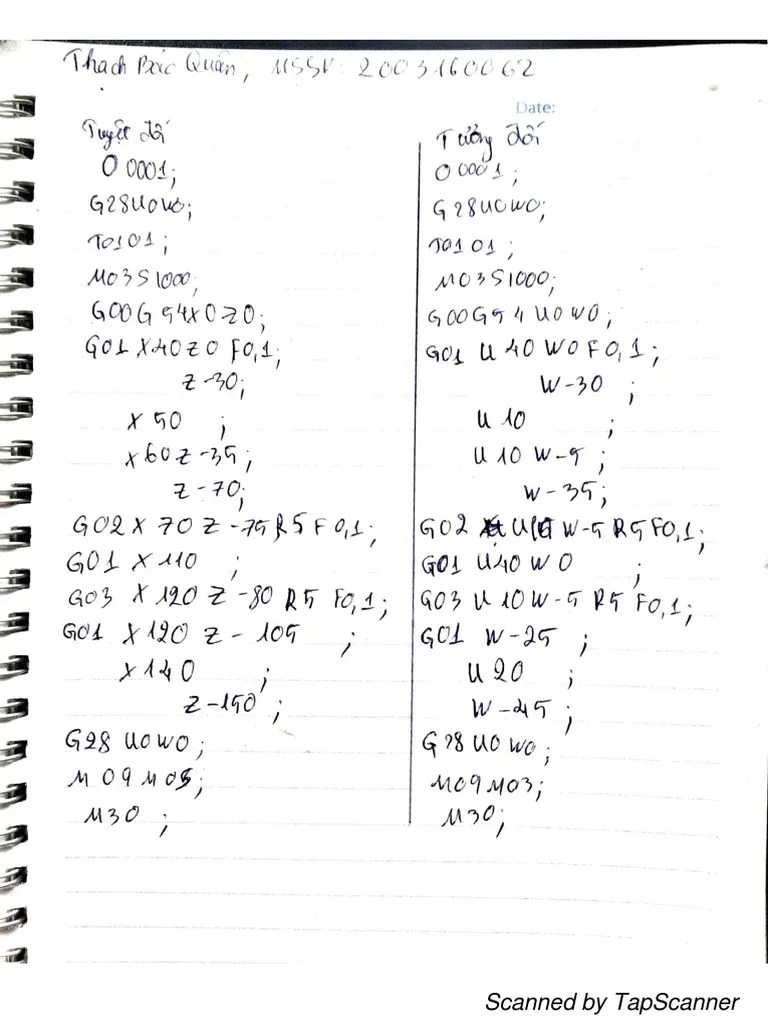 Thạch Bảo Quân, MSSV: 2003160062
Date:
Tuyệt đối
O 0001;
G28U0W0;
T0101;
M03S1000;
G00G54X0Z0;
G01 X40Z0 F0,1;
Z-30;
X 50 ;
X60Z-35;
Z-70;
G02 X 70 Z -75 R5 F0,1;
G01 X 110 ;
G03 X 120 Z -80 R5 F0,1;
G01 X120 Z - 105 ;
X140 ;
Z-150 ;
G28 U0W0;
M 09 M05;
M30 ;
Tương đối
O 0001;
G28U0W0;
T0101;
M03S1000;
G00G54U0W0;
G01 U40 W0F0,1;
W-30 ;
U 10 ;
U10 W-5 ;
W-35;
G02 W-5 R5 F0,1;
G01 U40 W0 ;
G03 U10W-5 R5 F0,1;
G01 W-25 ;
U 20 ;
W-45 ;
G28 U0W0;
M09M03;
M30;
Scanned by TapScanner